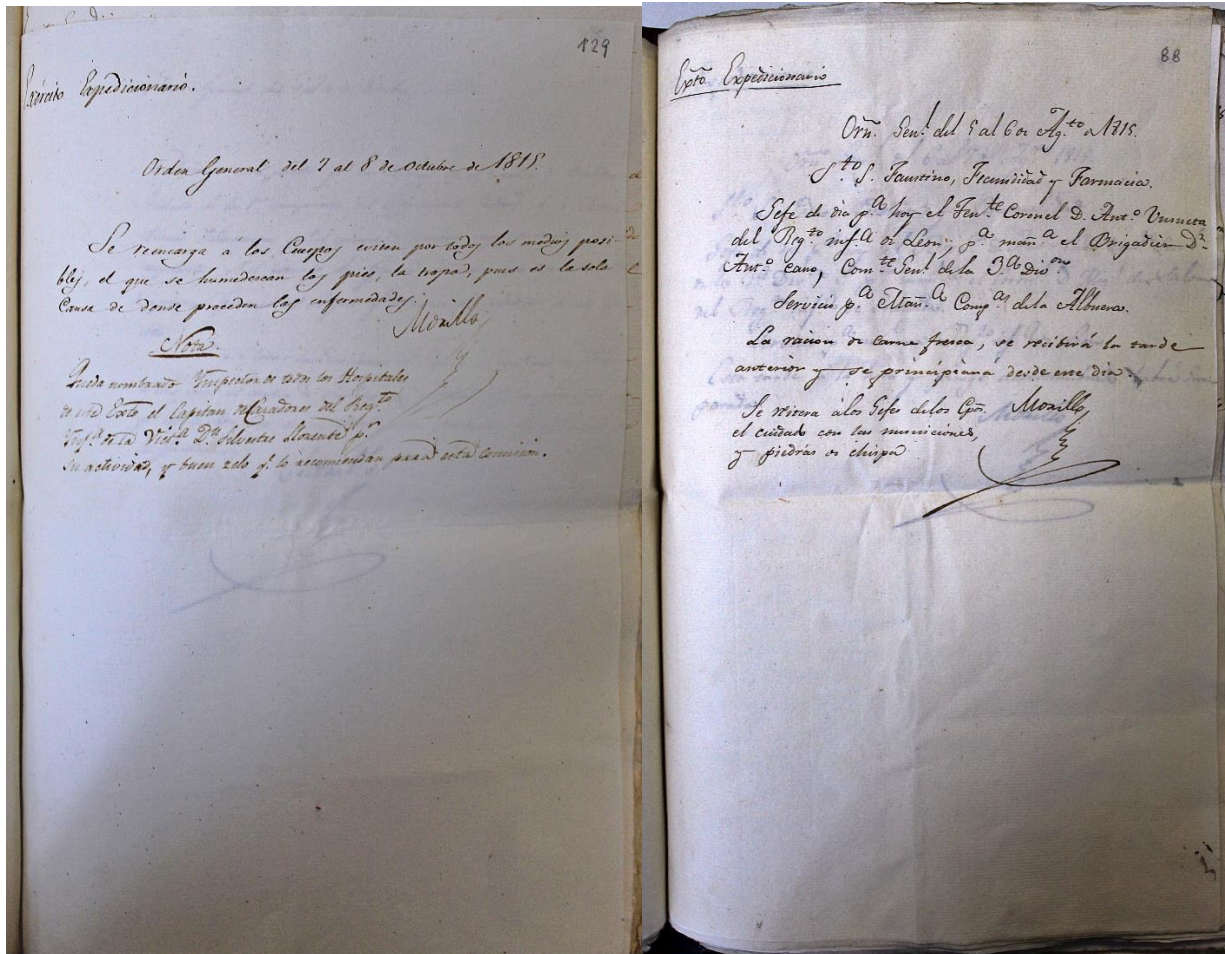 129
Exército Expedicionario.
Orden General del 7 al 8 de Octubre de 1815.
Se reencarga a los Cuerpos eviten por todos los medios posi-
bles, el que se humedescan los pies, la tropa, pues es la sola
Causa de donde proceden las enfermedades.
Morillo
Nota.
Queda nombrado Ynspector de todos los Hospitales
de este Exto el Capitan de Cazadores del Regto
Ynfa de la Victa Dn Silvestre Llorente pr
su actividad, y buen zelo qe lo recomiendan para esta comision.
88
Exto Expedicionario
Orn. Genl del 5 al 6 de Agto de 1815.
Sto S. Faustino, Fecundidad y Farmacia.
Gefe de dia pa hoy el Tente Coronel D. Anto
del Regto infa de Leon; pa mana el Brigadier Dn
Anto cano, Comte Genl de la 3a Dion
Servicio pa Mana Compas de la Albuera.
La racion de carne fresca, se recibirá la tarde
anterior y se principiara desde este dia.
Se reitera á los Gefes de los Cpos Morillo
el cuidado con las municiones,
y piedras de chispa